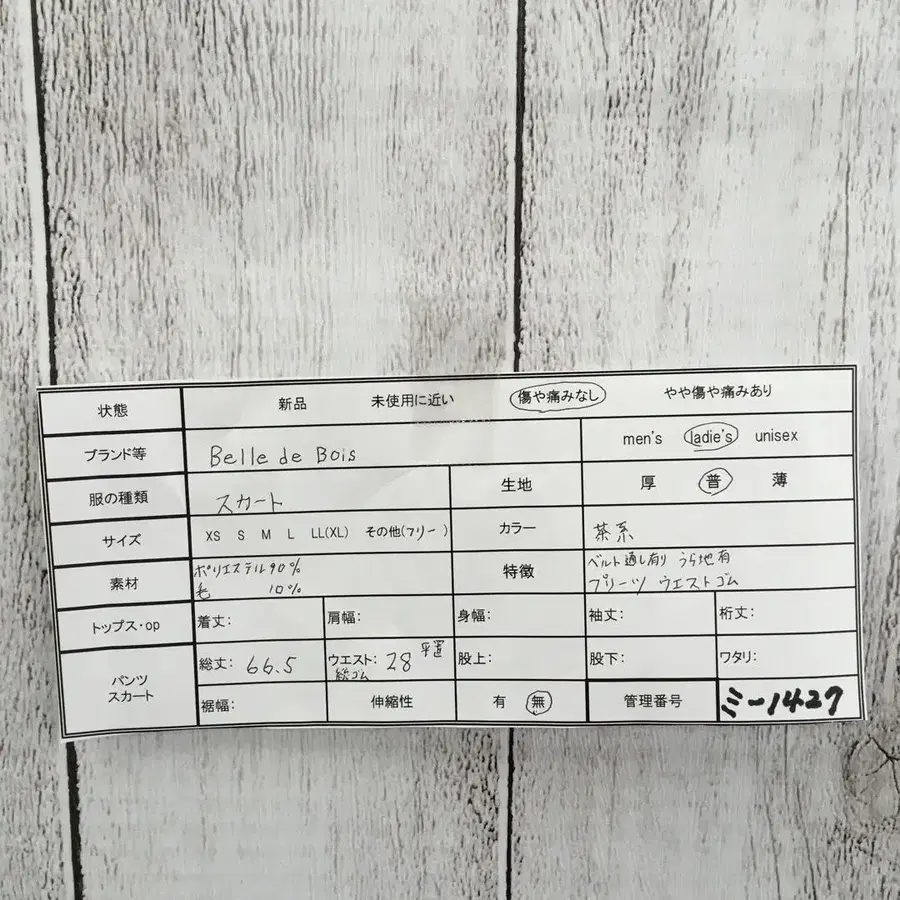 状態 新品 未使用に近い 傷や痛みなし やや傷や痛みあり
ブランド等 Belle de Bois men's ladie's unisex
服の種類 スカート 生地 厚 普 薄
サイズ XS S M L LL(XL) その他(フリー) カラー 茶系
素材 ポリエステル90% 特徴 ベルト通し有り うら地有
毛 10% プリーツ ウエストゴム
トップス・op 着丈: 肩幅: 身幅: 袖丈: 裄丈:
パンツ スカート 総丈: 66.5 ウエスト: 28 平置 股上: 股下: ワタリ:
総ゴム
裾幅: 伸縮性 有 無 管理番号 ミー1427